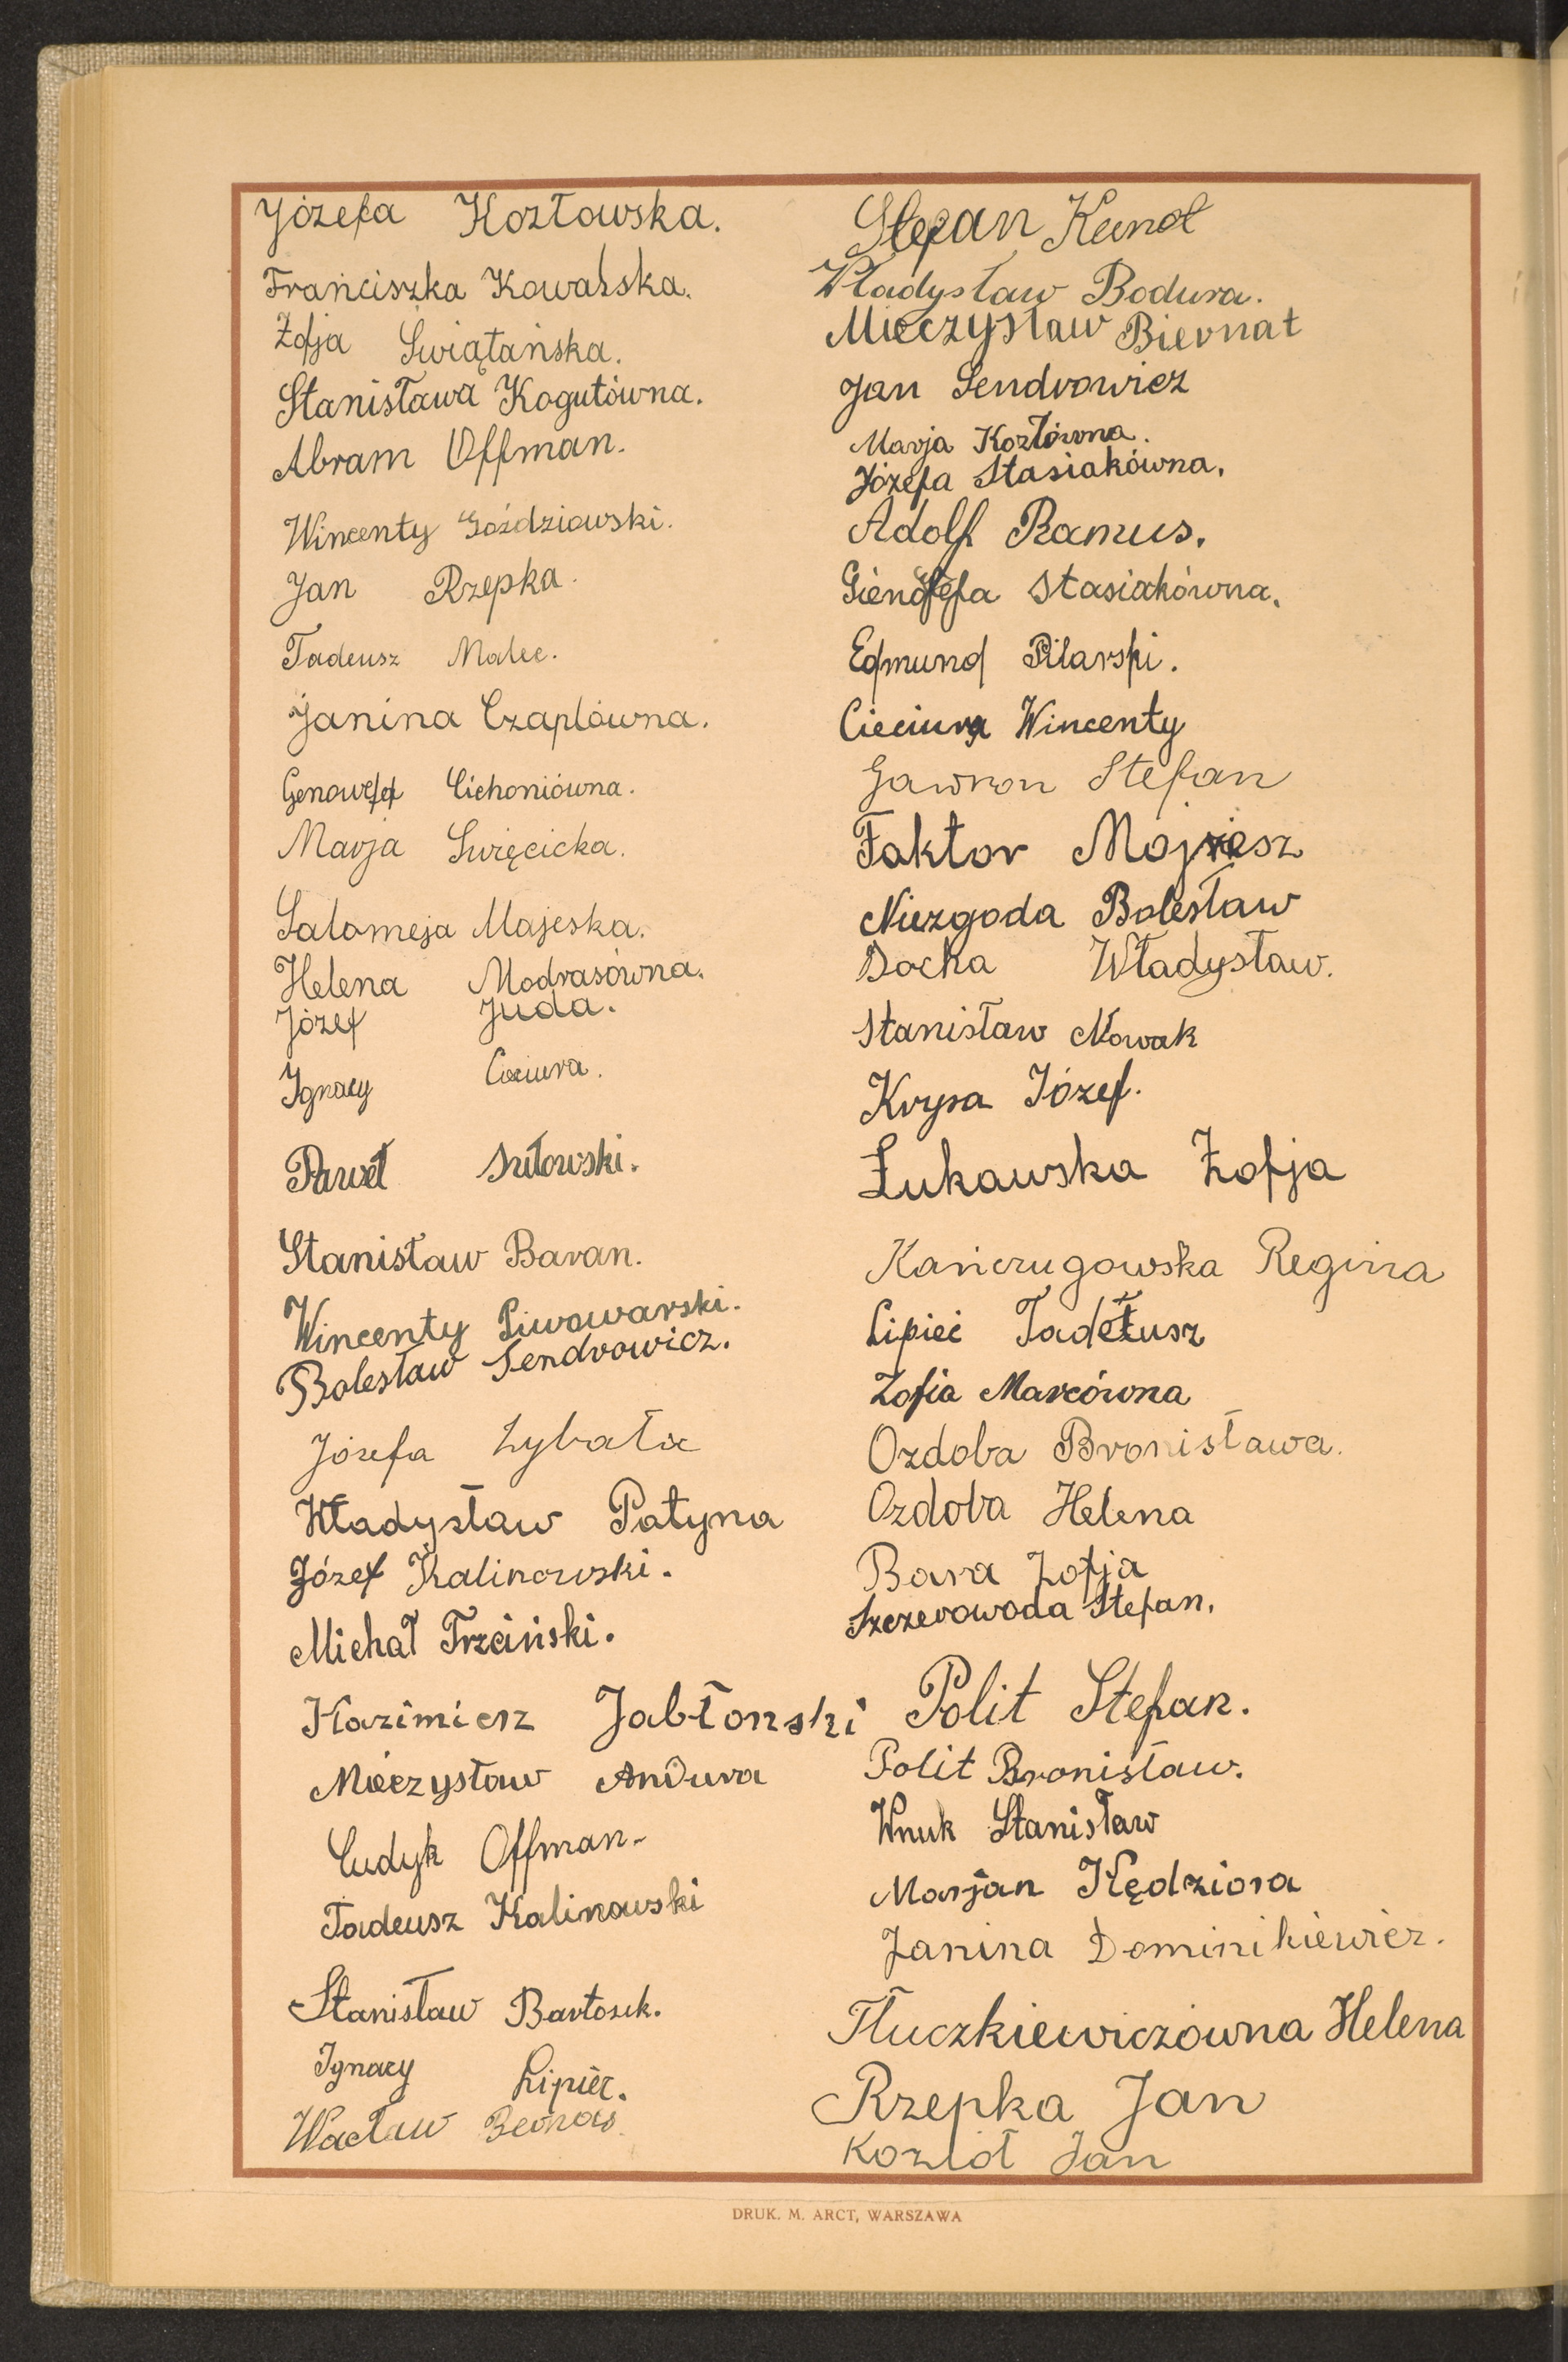 Józefa Kozłowska.
Franciszka Kowalska.
Zofja Świątańska.
Stanisława Kogutówna.
Abram Offman.
Wincenty Goździowski.
Jan Rzepka.
Tadeusz Malec.
Janina Czaplówna.
Genowefa Cichoniówna.
Marja Święcicka.
Salomeja Majeska.
Helena Modrasówna.
Józef Juda.
Ignacy Cieciura.
Paweł
Stanisław Baran.
Wincenty Piwowarski.
Bolesław Sendrowicz.
Józefa Zybała
Władysław Patyna
Józef Kalinowski.
Michał Trzciński.
Kazimierz Jabłonski
Mieczysław Andura
Offman
Tadeusz Kalinowski
Stanisław Bartosek.
Ignacy Lipiec.
Wacław
Stefan
Władysław Bodura.
Mieczysław Biernat
Jan Sendrowicz
Marja Kozłówna.
Józefa Stasiakówna.
Adolf Ramus.
Gienofefa Stasiakówna.
Edmund Pilarski.
Cieciura Wincenty
Gawron Stefan
Faktor Mojżesz
Niezgoda Bolesław
Docka Władysław.
Stanisław Nowak
Krysa Józef.
Łukawska Zofja
Kańczugowska Regina
Lipieć Tadeusz
Zofia Marcówna
Ozdoba Bronisława.
Ozdoba Helena
Bara Zofja
Szczerowoda Stefan.
Polit Stefan.
Polit Bronisław.
Wnuk Stanisław
Marjan Kędziora
Janina Dominikiewicz.
Tłuczkiewiczówna Helena
Rzepka Jan
Kozioł Jan
DRUK. M. ARCT, WARSZAWA